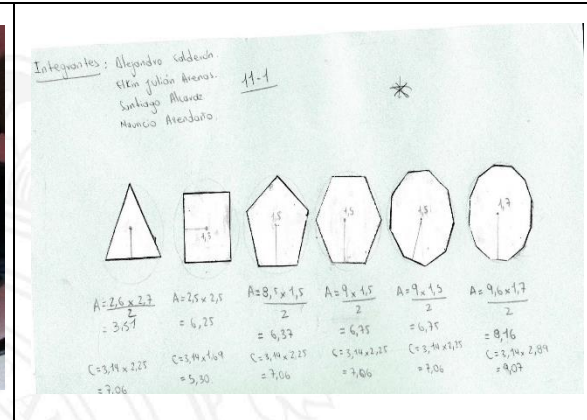 Integrantes : Alejandro Calderón
Elkin Julián Arenas.
Santiago
Mauricio Avendaño.
11-1
1,5
1,5
1,5
1,5
1,7
A=2,6 x 2,7
2
= 3,51
C=3,14 x 2,25
= 7,06
A=2,5 x 2,5
= 6,25
C=3,14 x 1,69
= 5,30
A=8,5 x 1,5
2
= 6,37
C=3,14 x 2,25
= 7,06
A=9 x 1,5
2
= 6,75
C=3,14 x 2,25
= 7,06
A=9 x 1,5
2
= 6,75
C=3,14 x 2,25
= 7,06
A=9,6 x 1,7
2
= 8,16
C=3,14 x 2,89
= 9,07